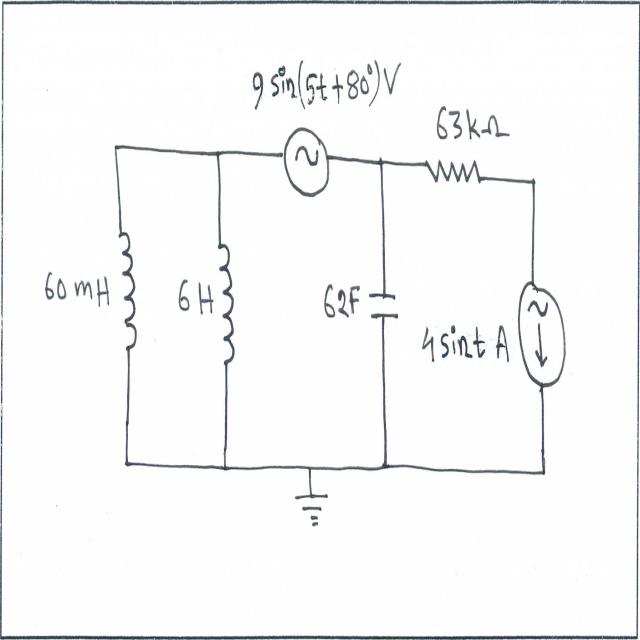 9 sin(5t+80°)V
63kΩ
60 mH
6H
62F
4 sint A